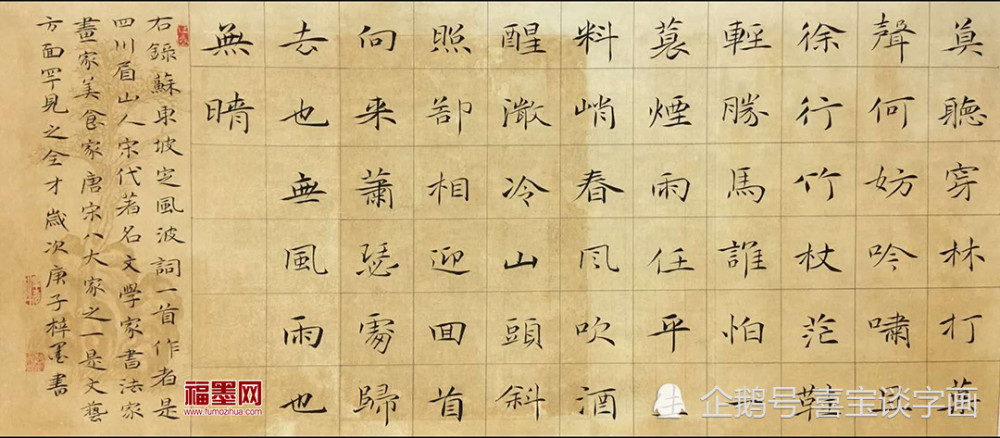 莫聽穿林打葉
聲何妨吟嘯且
徐行竹杖芒鞋
輕勝馬誰怕一
蓑煙雨任平生
料峭春風吹酒
醒微冷山頭斜
照卻相迎回首
向来蕭瑟處歸
去也無風雨也
無晴
右錄蘇東坡定風波詞一首作者是
四川眉山人宋代著名文學家書法家
畫家美食家唐宋八大家之一是文藝
方面罕見之全才 歲次庚子梓墨書
福墨网
www.fumozhua.com
企鹅号 喜宝谈字画